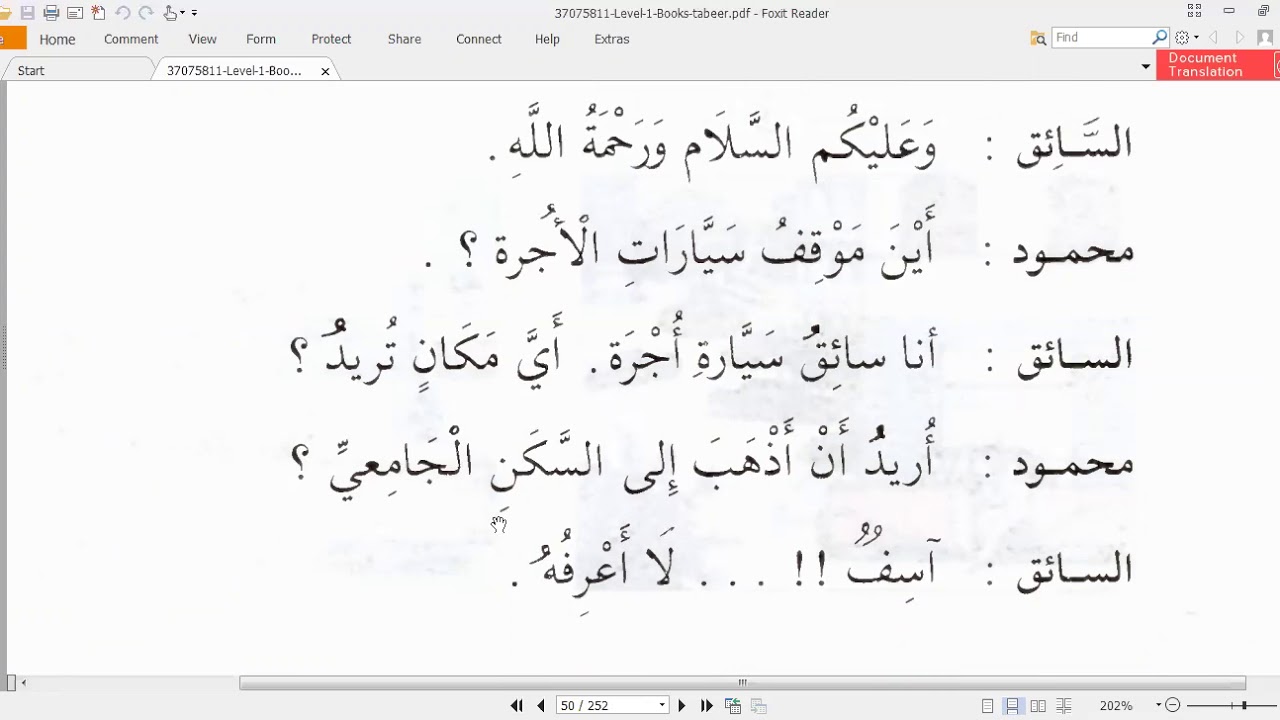 37075811-Level-1-Books-tabeer.pdf - Foxit Reader
Home Comment View Form Protect Share Connect Help Extras
Find
Start
37075811-Level-1-Boo... x
Document Translation
السَّـائِق : وَعَلَيْكُم السَّلَام وَرَحْمَةُ اللَّهِ .
محمـود : أَيْنَ مَوْقِفُ سَيَّارَاتِ الْأُجرة ؟ .
السـائق : أنا سائِقُ سَيَّارةِ أُجْرَة . أَيَّ مَكَانٍ تُريدُ ؟
محمـود : أُريدُ أَنْ أَذْهَبَ إِلى السَّكَنِ الْجَامِعيِّ ؟
السـائق : آسِفٌ !! . . . لَا أَعْرِفُهُ .
50 / 252
202%